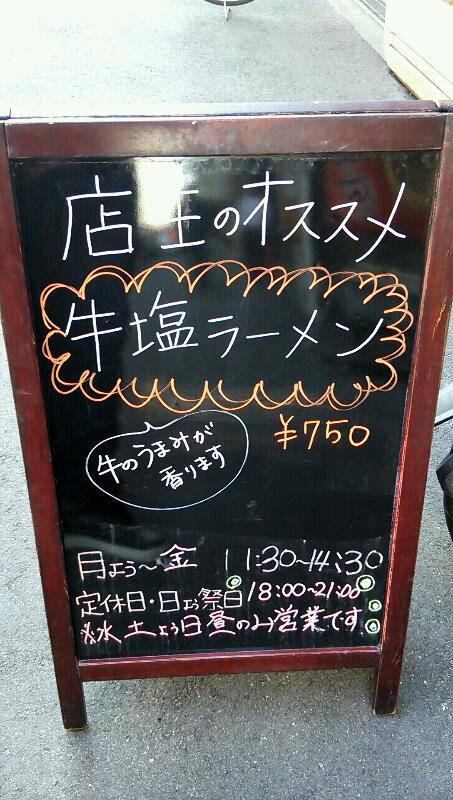 店主のオススメ
牛塩ラーメン
¥750
牛のうまみが
香ります
月よう〜金 11:30〜14:30
定休日・日よう祭日 18:00〜21:00
※水土よう日昼のみ営業です